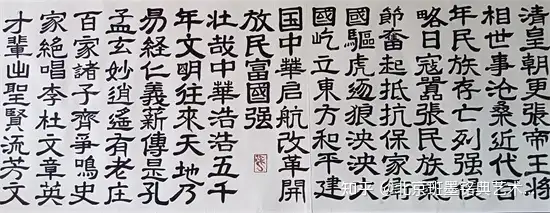 清皇朝更張帝王将
相世事沧桑近代百
年民族存亡列强侵
略日寇嚣張民族氣
節奮起抵抗保家衛
國驅虎逐狼泱泱大
國屹立東方和平建
国中華启航改革開
放民富國强
壮哉中華浩浩五千
年文明往來天地乃
易経仁義薪傳是孔
孟玄妙逍遥有老庄
百家諸子齊争鳴史
家绝唱李杜文章英
才輩出聖賢流芳文
知乎 @北京班墨名典艺术